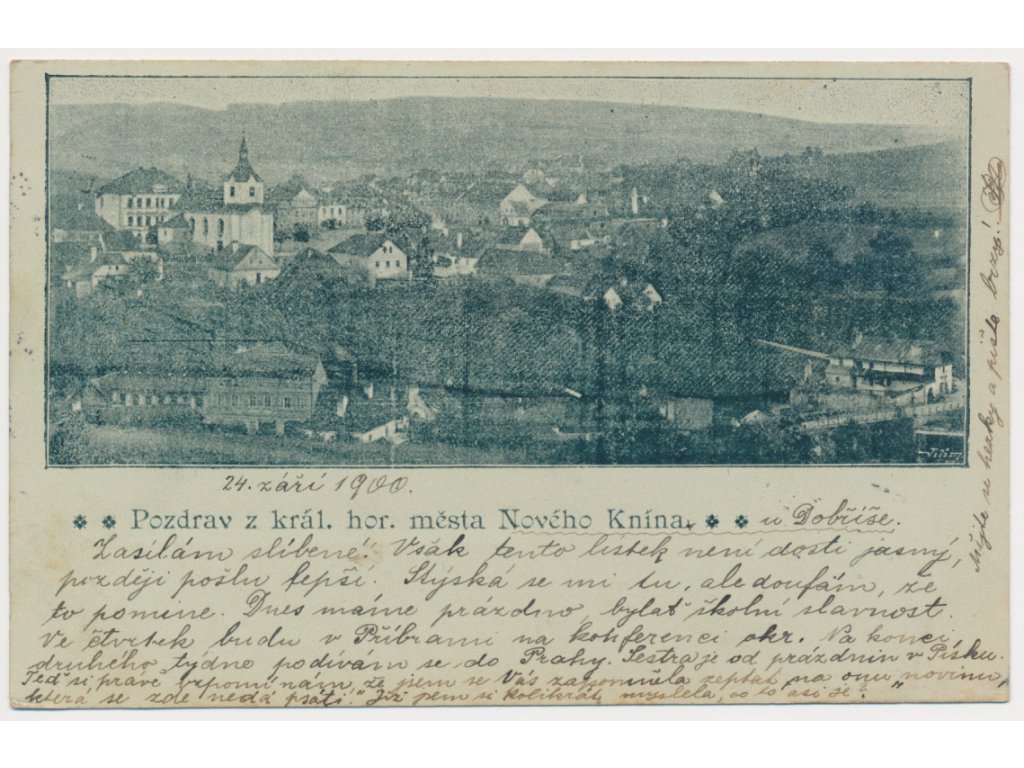 24. září 1900.
Pozdrav z král. hor. města Nového Knína. u Dobříše.
Zasílám slíbené! Však tento lístek není dosti jasný,
později pošlu lepší. Stýská se mi tu, ale doufám, že
to pomine. Dnes máme prázdno, bylať školní slavnost.
Ve čtvrtek budu v Příbrami na konferenci okr. Na konci
druhého týdne podívám se do Prahy. Sestra je od prázdnin v Písku.
Teď si právě vzpomínám, že jsem se Vás zapomněla zeptat na onu „novinu,
která se zde nedá psáti." Již jsem si kolikrát myslela, co to asi je!
Mějte se hezky a pište brzy!